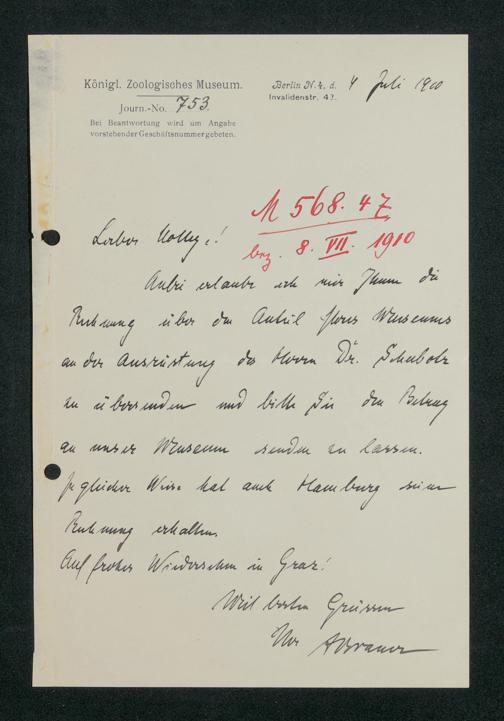 Königl. Zoologisches Museum.
Journ.-No. 753.
Bei Beantwortung wird um Angabe
vorstehender Geschäftsnummer gebeten.
Berlin N. 4, d. 4 Juli 1910
Invalidenstr. 43.
M 568.47
bez. 8. VII. 1910
Lieber Kollege!
Anbei erlaube ich mir Ihnen die
Rechnung über den Anteil Ihres Museums
an der Ausrüstung des Herrn Dr. Schubotz
zu übersenden und bitte Sie den Betrag
an unser Museum senden zu lassen.
In gleicher Weise hat auch Hamburg seine
Rechnung erhalten.
Auf frohes Wiedersehen in Graz!
Mit besten Grüssen
Ihr ABrauer